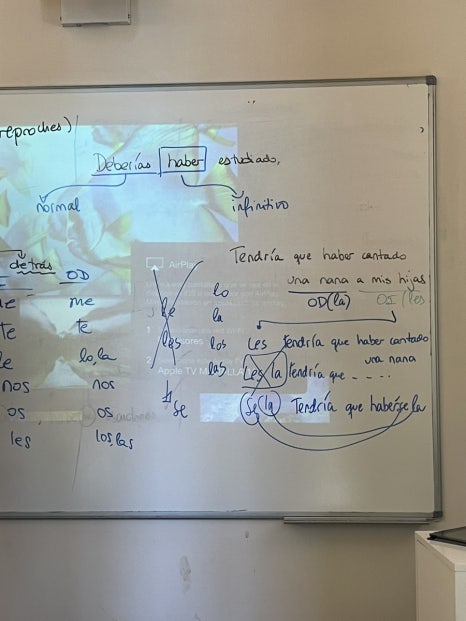 reproches)
Deberías haber estudiado,
normal
infinitivo
detrás
OD
me
te
lo, la
nos
nos
os
os
les
los, las
le
les
se
lo
la
los
las
AirPlay
Apple TV
Tendría que haber cantado
una nana a mis hijas
OD (la) OI (les
Les tendría que haber cantado
una nana
Les la tendría que ....
Se la Tendría que habérsela